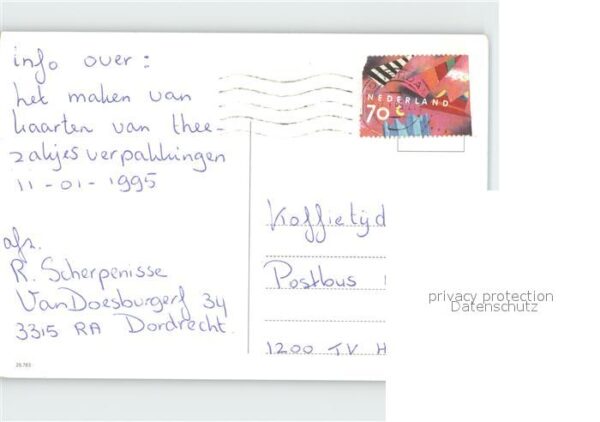 info over :
het maken van
kaarten van thee-
zakjes verpakkingen
11-01-1995
afz.
R. Scherpenisse
Van Doesburgerf 34
3315 RA Dordrecht.
26.783
NEDERLAND
70 c
Koffietijd
Postbus
1200 TV H
privacy protection
Datenschutz